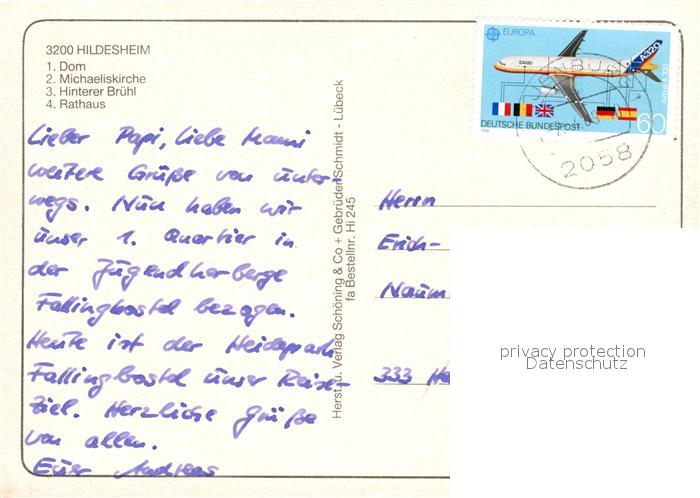 3200 HILDESHEIM
1. Dom
2. Michaeliskirche
3. Hinterer Brühl
4. Rathaus
Lieber Papi, liebe Mami
weitere Grüße von unter-
wegs. Nun haben wir
unser 1. Quartier in
der Jugendherberge
Fallingbostel bezogen.
Heute ist der Heidepark
Fallingbostel unser Reise-
ziel. Herzliche Grüße
von allen.
Euer Andreas
Herst. u. Verlag Schöning & Co + Gebrüder Schmidt - Lübeck
fa Bestellnr. Hi 245
EUROPA
A320
Airbus A 320
DEUTSCHE BUNDESPOST
60
2058
Herrn
Erich-
Naum
333 He
privacy protection
Datenschutz